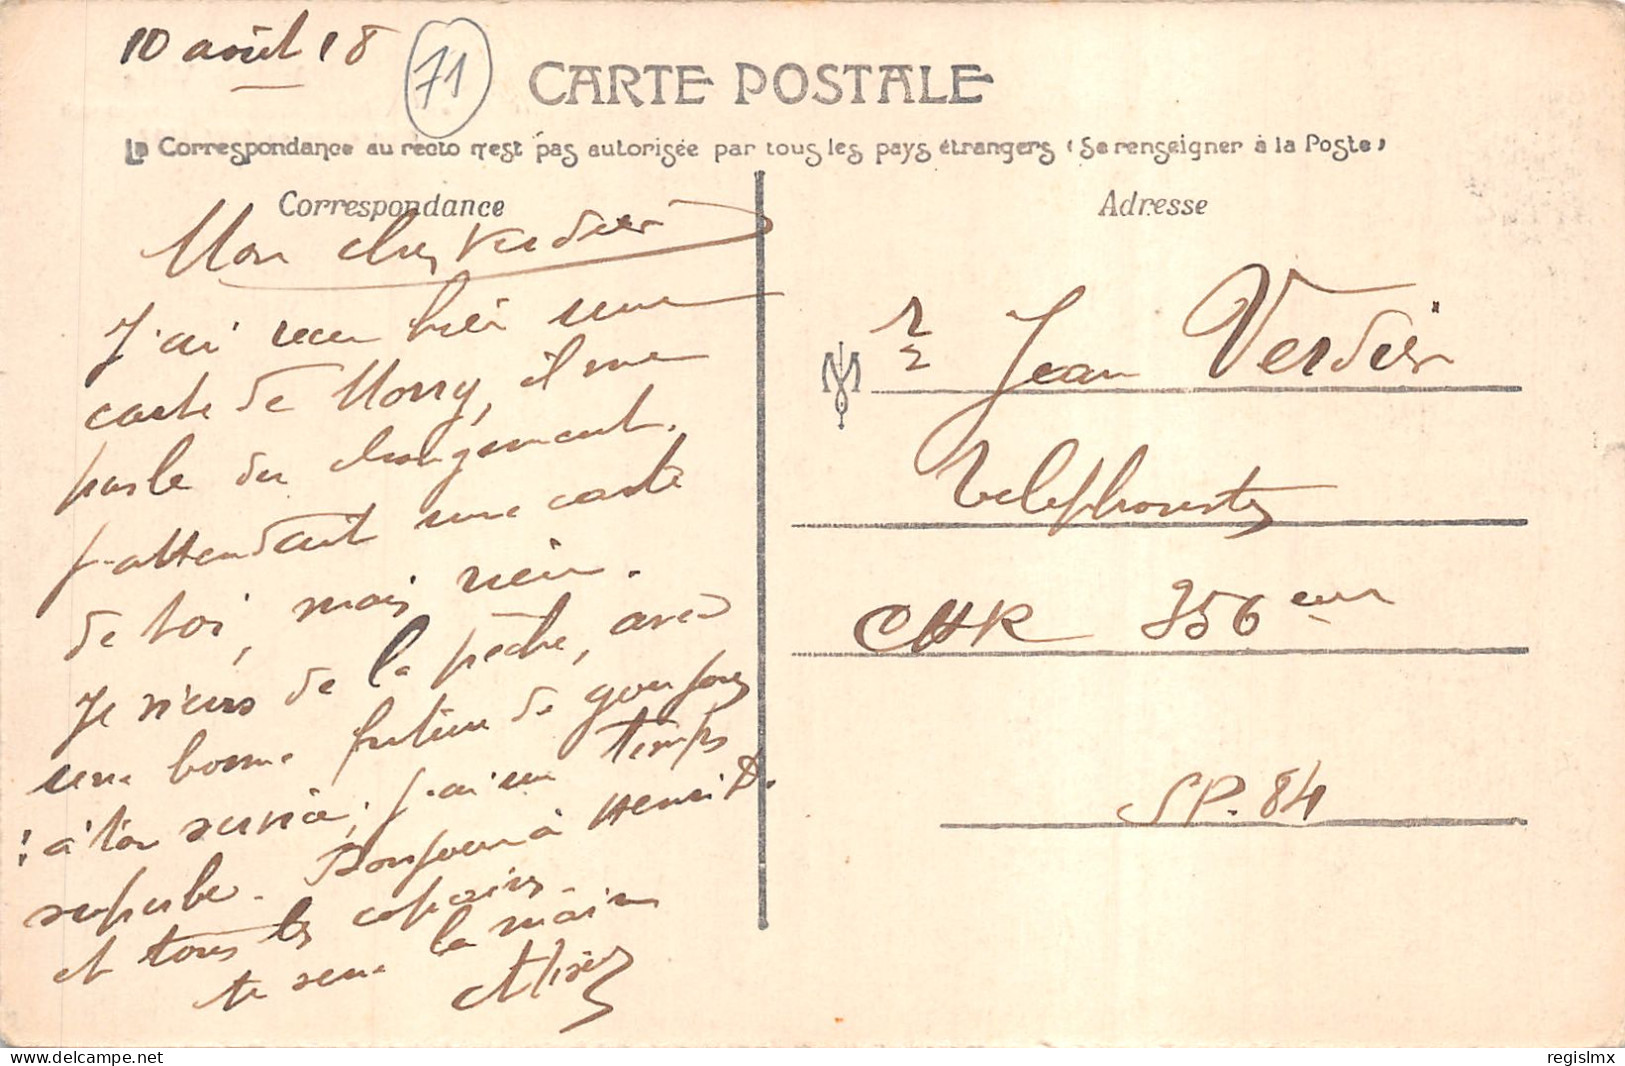 10 août 18
71
CARTE POSTALE
La Correspondance au recto n'est pas autorisée par tous les pays étrangers (Se renseigner à la Poste)
Correspondance
Mon cher Verdier
J'ai reçu hier une
carte de Morry, il me
parle du changement.
J'attendait une carte
de toi, mais rien.
Je viens de la pêche, avec
une bonne friture de goujons
à ton service, j'ai un temps
superbe. Bonjour à Henri D.
et tous les copains.
te serre la main
Adresse
Jean Verdier
Telephoniste
CHR 356 eme
SP. 84
regislmx